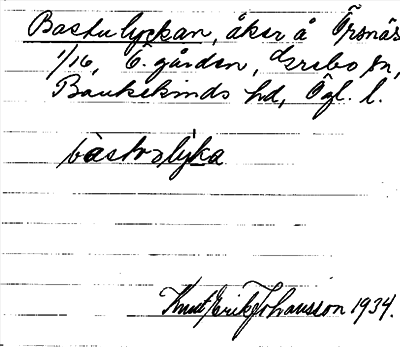 Bastulyckan, åker å Örsnäs
1/16, Ö. gården, Grebo sn,
Bankekinds hd, Ögl. l.
bastuslyka
Knut Erik Johansson 1934.